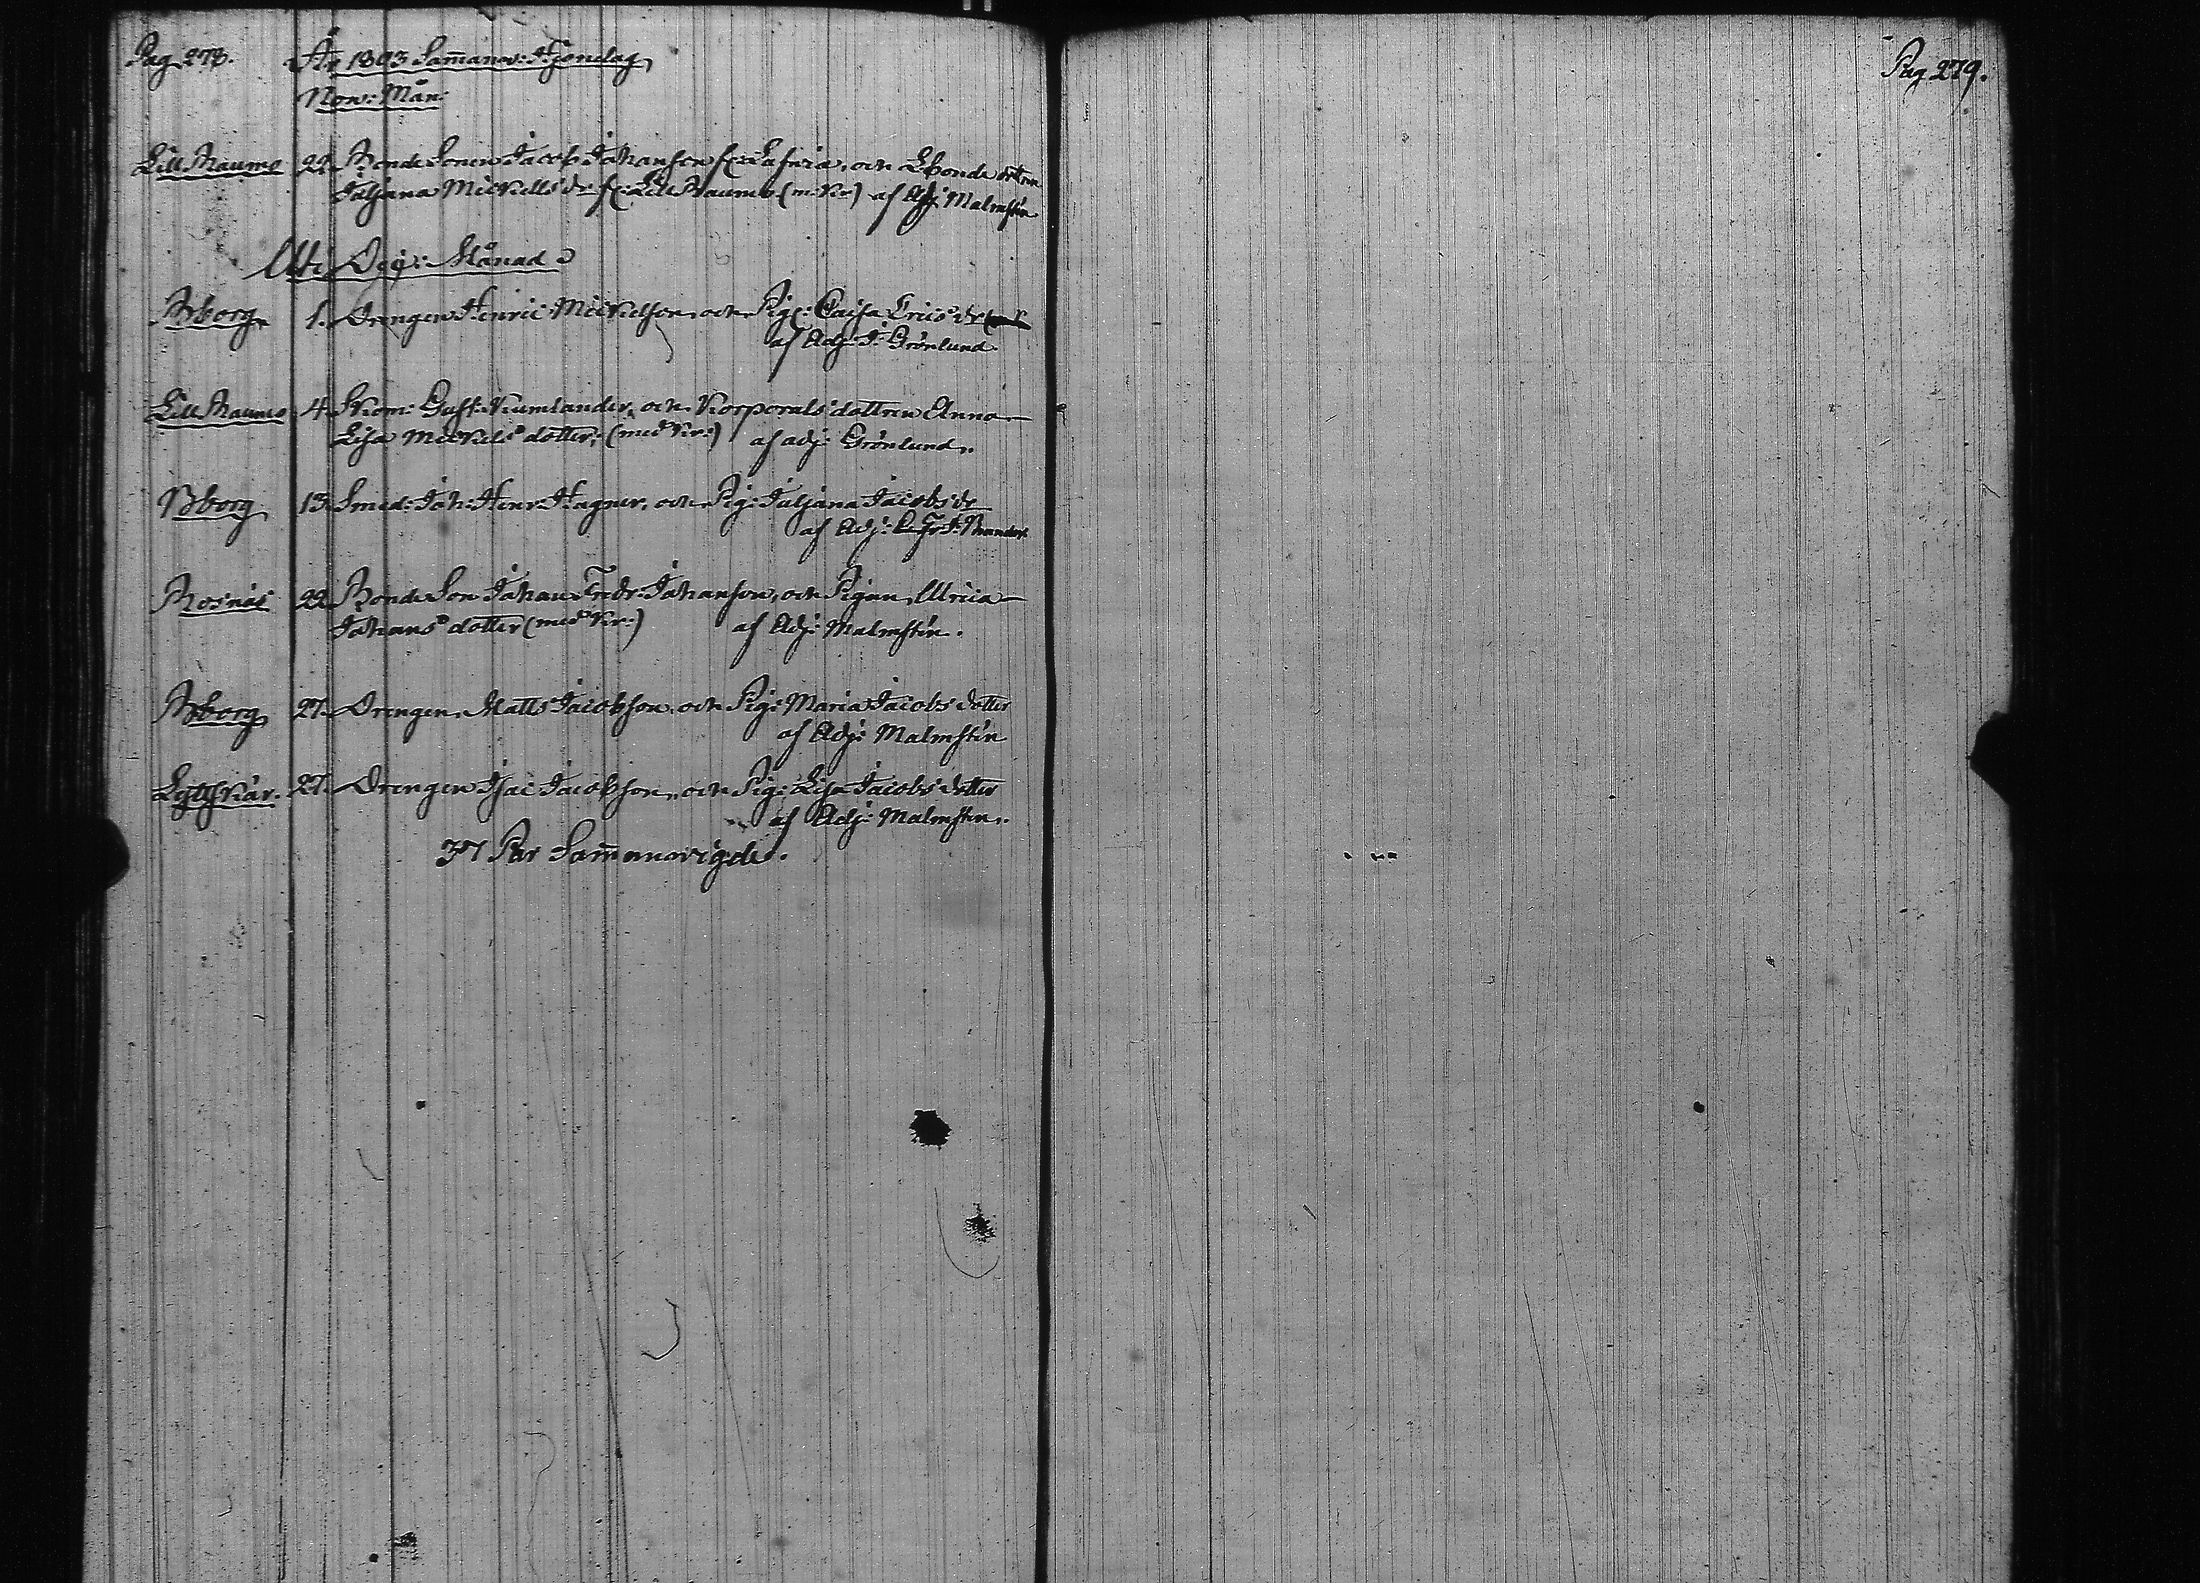 Pag 278. År 1803 Sam̄anv: Hjonelag
Nov: Mån:
Lill Raumo 22. Bonde Sonen Jacob Johanson fr: Lasnia, och Bonde dottren
Juljana Mickells dr fr: Lill Raumo (m: Kr:) af Adj: Malmstén
Uti Dec: Månad
Bborg 1. Drengen Henric Mickelson och Pig: Caisa Erics dr
af Adj: J: Grönlund
Lill Raumo 4. Skom: Gust: Kumlander, och Korporals dottren Anna
Lisa Mickels dotter, (med Kr:) af adj: Grönlund.
Bborg 13. Smed: Joh: Henr: Hagner, och Pig: Juljana Jacobs dr
af Adj:
Rosnäs 22. Bonde Son Johan Fredr: Johanson, och Pigan Ulrica
Johans dotter (med Kr:) af Adj: Malmstén.
Bborg 27. Drengen Matts Jacobson och Pig: Maria Jacobs dotter
af Adj: Malmstén
27. Drengen Isac Jacobson och Pig: Lisa Jacobs dotter
af Adj: Malmstén.
37 Par Sam̄anvigde.
Pag 279.